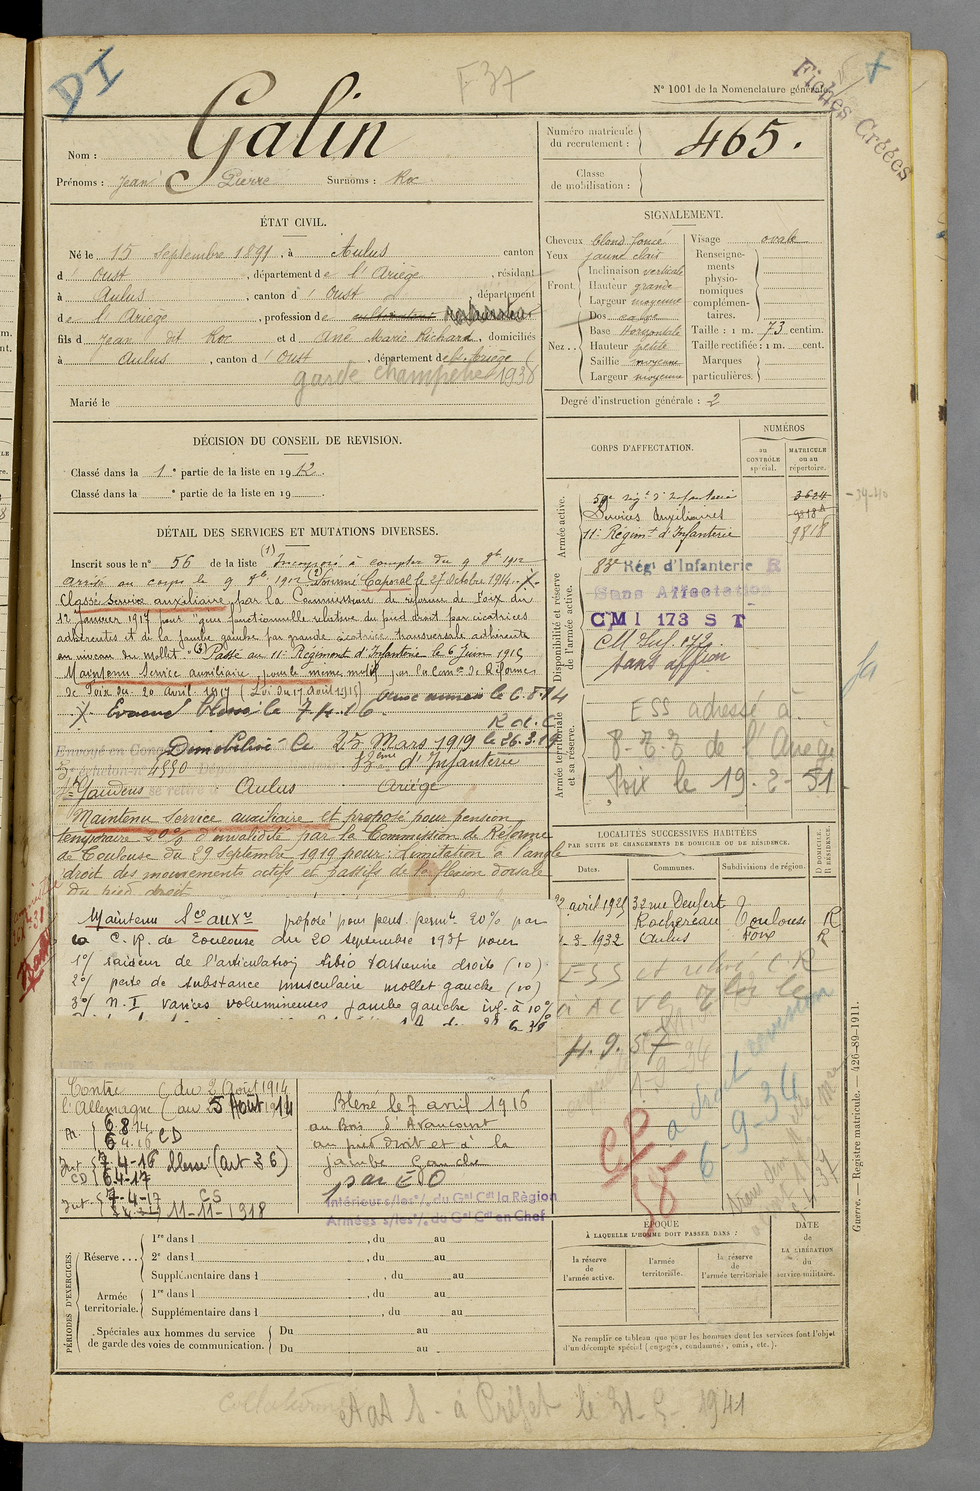 DI
F 37
N° 1001 de la Nomenclature générale.
Fiches Créées
Nom : Galin
Prénoms : Jean Pierre Surnoms : Roc
Numéro matricule du recrutement : 465.
Classe de mobilisation :
ÉTAT CIVIL.
Né le 15 Septembre 1891, à Aulus canton
d' Oust, département de l'Ariège, résidant
à Aulus, canton d' Oust, département
de l'Ariège, profession de cultivateur
fils d Jean dit Roc et d Ane Marie Richard, domiciliés
à Aulus, canton d' Oust, département de l'Ariège
garde champêtre 1938
Marié le
SIGNALEMENT.
Cheveux blond foncé
Yeux jaune clair
Front. Inclinaison verticale
Hauteur grande
Largeur moyenne
Nez .. Dos cave
Base Horizontale
Hauteur petite
Saillie moyenne
Largeur moyenne
Visage ovale
Renseigne-
ments
physio-
nomiques
complémen-
taires.
Taille : 1 m. 73 centim.
Taille rectifiée : 1 m. cent.
Marques
particulières.
Degré d'instruction générale : 2
DÉCISION DU CONSEIL DE REVISION.
Classé dans la 1e partie de la liste en 1912.
Classé dans la e partie de la liste en 19
CORPS D'AFFECTATION.
NUMÉROS
au CONTRÔLE spécial.
MATRICULE ou au répertoire.
Armée active.
59e régt d'Infanterie 3624
Services Auxiliaires
11e Régimt d'Infanterie 9818
Disponibilité et réserve de l'armée active.
83e Régt d'Infanterie R
Sans Affectation
CMI 173 S T
sans affion
Armée territoriale et sa réserve.
ESS adressé à
de l'Ariège
Foix le 19-2-51
DÉTAIL DES SERVICES ET MUTATIONS DIVERSES.
Inscrit sous le n° 56 de la liste (1) Incorporé à compter du 9 8bre 1912
arrivé au corps le 9 8bre 1912 Nommé Caporal le 27 Octobre 1914. X
Classé Service auxiliaire par la Commission de réforme de Foix du
12 Janvier 1917 pour "gêne fonctionnelle relative du pied droit par cicatrices
adhérentes et de la jambe gauche par grande cicatrice transversale adhérente
au niveau du mollet" Passé au 11e Régiment d'Infanterie le 6 Juin 1915
Maintenu Service auxiliaire pour le même motif par la Comon de Réformes
de Foix du 20 Avril 1917 (Loi du 17 Août 1915) aux armées le 6.8.14
X. Evacué blessé le 7.4.16. R d. C
Envoyé en Congé Démobilisé le 25 Mars 1919 le 26.3.19
échelon n° 4550 Dépôt d'Infanterie
St Gaudens se retire à Aulus Ariège
Maintenu Service auxiliaire et proposé pour pension
temporaire 20% d'invalidité par la Commission de Réforme
de Toulouse du 29 Septembre 1919 pour : limitation à l'angle
droit des mouvements actifs et passifs de la flexion dorsale
du pied droit
Maintenu Sce auxre proposé pour pens. permte 20% par
la C.R. de Toulouse du 20 Septembre 1937 pour
1°/ raideur de l'articulation tibio tarsienne droite (10)
2°/ perte de substance musculaire mollet gauche (10)
3°/ N.I varices volumineuses jambe gauche inf. à 10%
LOCALITÉS SUCCESSIVES HABITÉES
PAR SUITE DE CHANGEMENTS DE DOMICILE OU DE RÉSIDENCE.
Dates.
Communes.
Subdivisions de région.
D DOMICILE. R RÉSIDENCE.
22 avril 1925 32 rue Denfert
Rochereau Toulouse R
1-3-1932 Aulus Foix R
4.9.57
6-9-34
CP
58
Contre l'Allemagne
du 2 Août 1914
au 5 Août 1914
6.8.14
6.4.16 CD
Int. 7-4-16 blessé (art 36)
CD 6.4-17
Int. 7-4-17 CS
11-11-1918
Blessé le 7 avril 1916
au Bois d'Avaucourt
au pied droit et à la
jambe Gauche
par EDO
Intérieur s/les °/. du Gal Cdt la Région
Armées s/les °/. du Gal Cdt en Chef
PÉRIODES D'EXERCICES.
Réserve ...
1re dans l , du au
2e dans l , du au
Supplémentaire dans l , du au
Armée territoriale.
1re dans l , du au
Supplémentaire dans l , du au
Spéciales aux hommes du service
de garde des voies de communication.
Du au
Du au
ÉPOQUE
À LAQUELLE L'HOMME DOIT PASSER DANS :
la réserve de l'armée active.
l'armée territoriale.
la réserve de l'armée territoriale
DATE de LA LIBÉRATION du service militaire.
Ne remplir ce tableau que pour les hommes dont les services font l'objet
d'un décompte spécial (engagés, condamnés, omis, etc.).
Guerre. — Registre matricule. — 426-89-1911.
à Préfet le 31-5-1941